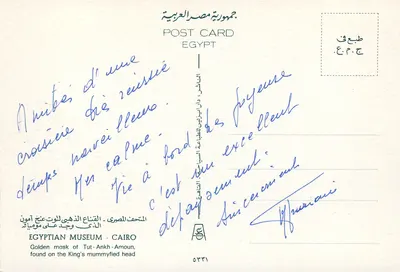 جمهورية مصر العربية
POST CARD
EGYPT
طبع فى
ج.م.ع.
Amitiés d'une
croisière très réussie
temps merveilleux
Mer calme.
Vie à bord joyeuse
c'est un excellent
dépaysement.
Sincèrement
المتحف المصرى . القناع الذهبى لتوت عنخ آمون
الذى وجد على مومياته
EGYPTIAN MUSEUM - CAIRO
Golden mask of Tut-Ankh-Amoun,
found on the King's mummyfied head
٥٣٣١